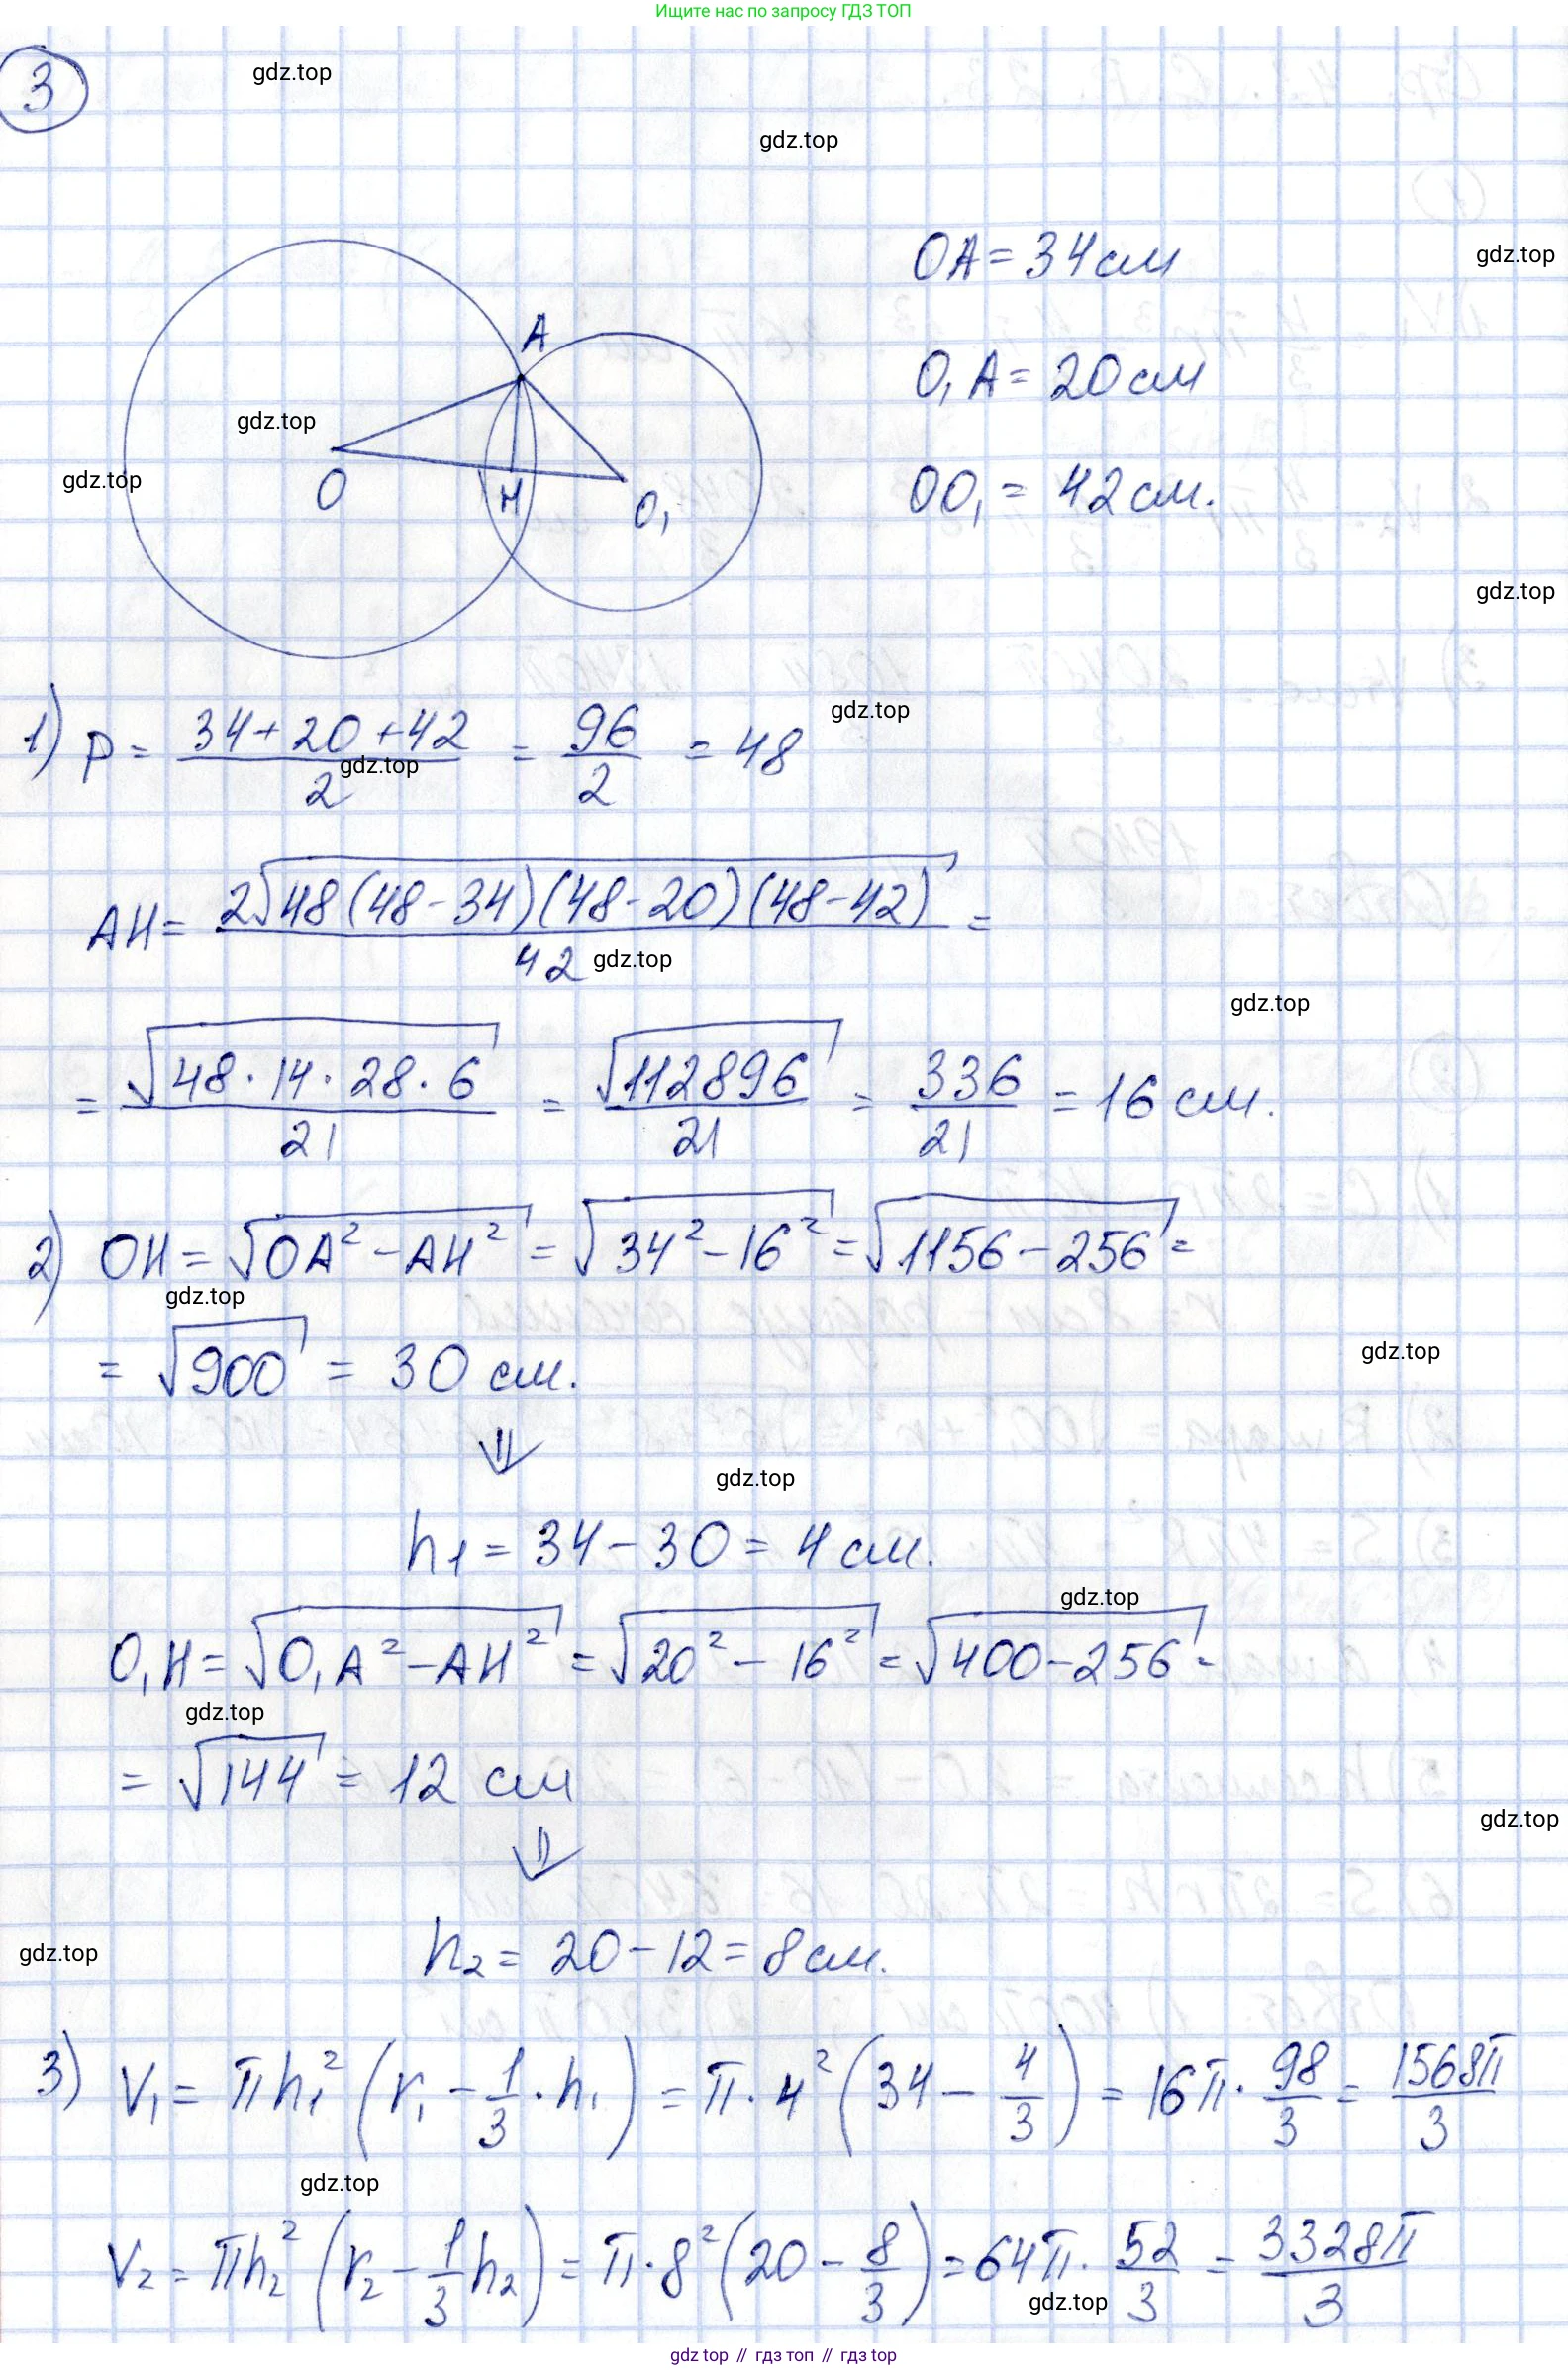 Ищите нас по запросу ГДЗ ТОП
3
gdz.top
gdz.top
OA = 34 см
gdz.top
A
O₁A = 20 см
gdz.top
gdz.top
O
H
O₁
OO₁ = 42 см.
gdz.top
1) p = (34 + 20 + 42)/2 = 96/2 = 48
gdz.top
gdz.top
AH = 2√(48(48-34)(48-20)(48-42))/42 =
gdz.top
gdz.top
= √(48·14·28·6)/21 = √112896/21 = 336/21 = 16 см.
2) OH = √(OA² - AH²) = √(34² - 16²) = √(1156 - 256) =
gdz.top
= √900 = 30 см.
gdz.top
⇓
gdz.top
h₁ = 34 - 30 = 4 см.
gdz.top
O₁H = √(O₁A² - AH²) = √(20² - 16²) = √(400 - 256) =
gdz.top
= √144 = 12 см
gdz.top
⇓
h₂ = 20 - 12 = 8 см.
gdz.top
3) V₁ = πh₁² (r₁ - 1/3 · h₁) = π · 4² (34 - 4/3) = 16π · 98/3 = 1568π/3
gdz.top
V₂ = πh₂² (r₂ - 1/3 h₂) = π · 8² (20 - 8/3) = 64π · 52/3 = 3328π/3
gdz.top
gdz.top // гдз топ // gdz.top